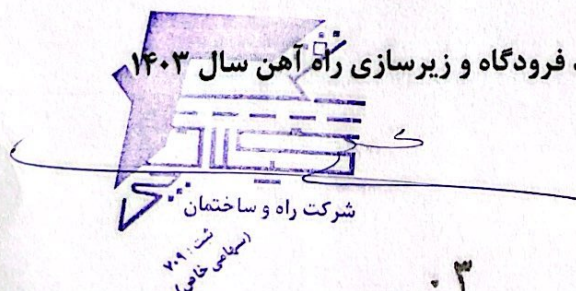 فرودگاه و زیرسازی راه آهن سال ۱۴۰۳
شرکت راه و ساختمان
ثبت: ۲۰۹
(سهامی خاص)
۰۳